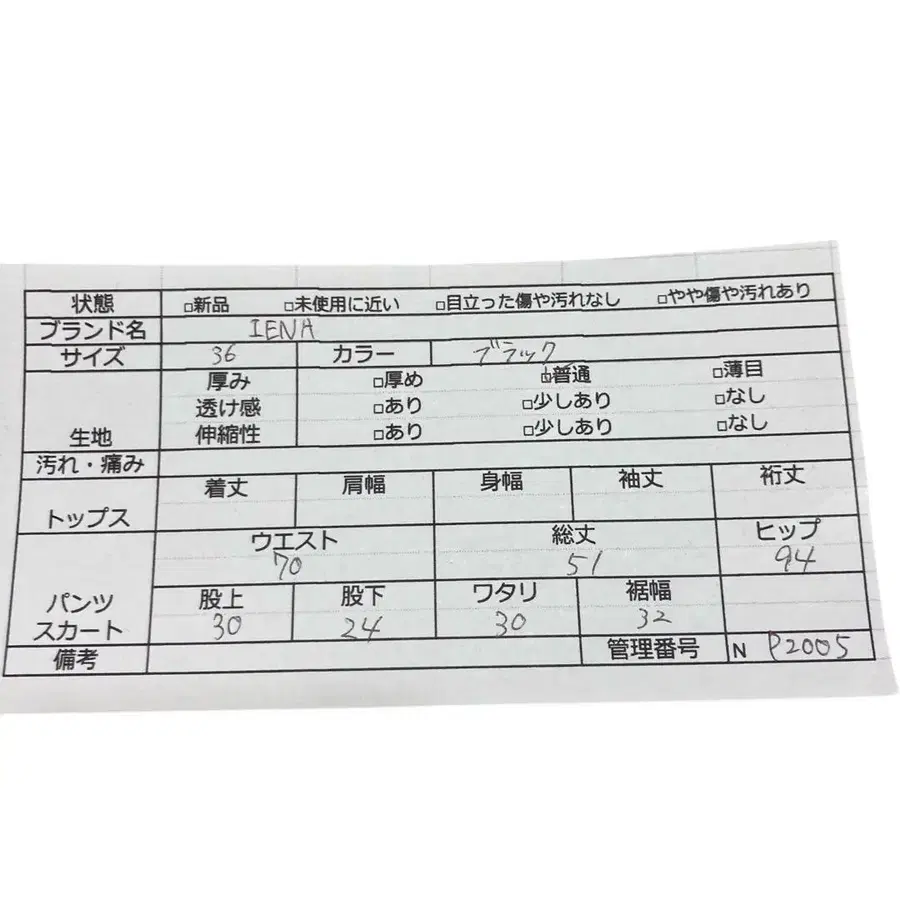 状態 □新品 □未使用に近い □目立った傷や汚れなし □やや傷や汚れあり
ブランド名 IENA
サイズ 36 カラー ブラック
厚み □厚め □普通 □薄目
透け感 □あり □少しあり □なし
生地 伸縮性 □あり □少しあり □なし
汚れ・痛み
着丈 肩幅 身幅 袖丈 裄丈
トップス
ウエスト 総丈 ヒップ
70 51 94
パンツ 股上 股下 ワタリ 裾幅
スカート 30 24 30 32
備考 管理番号 N P2005